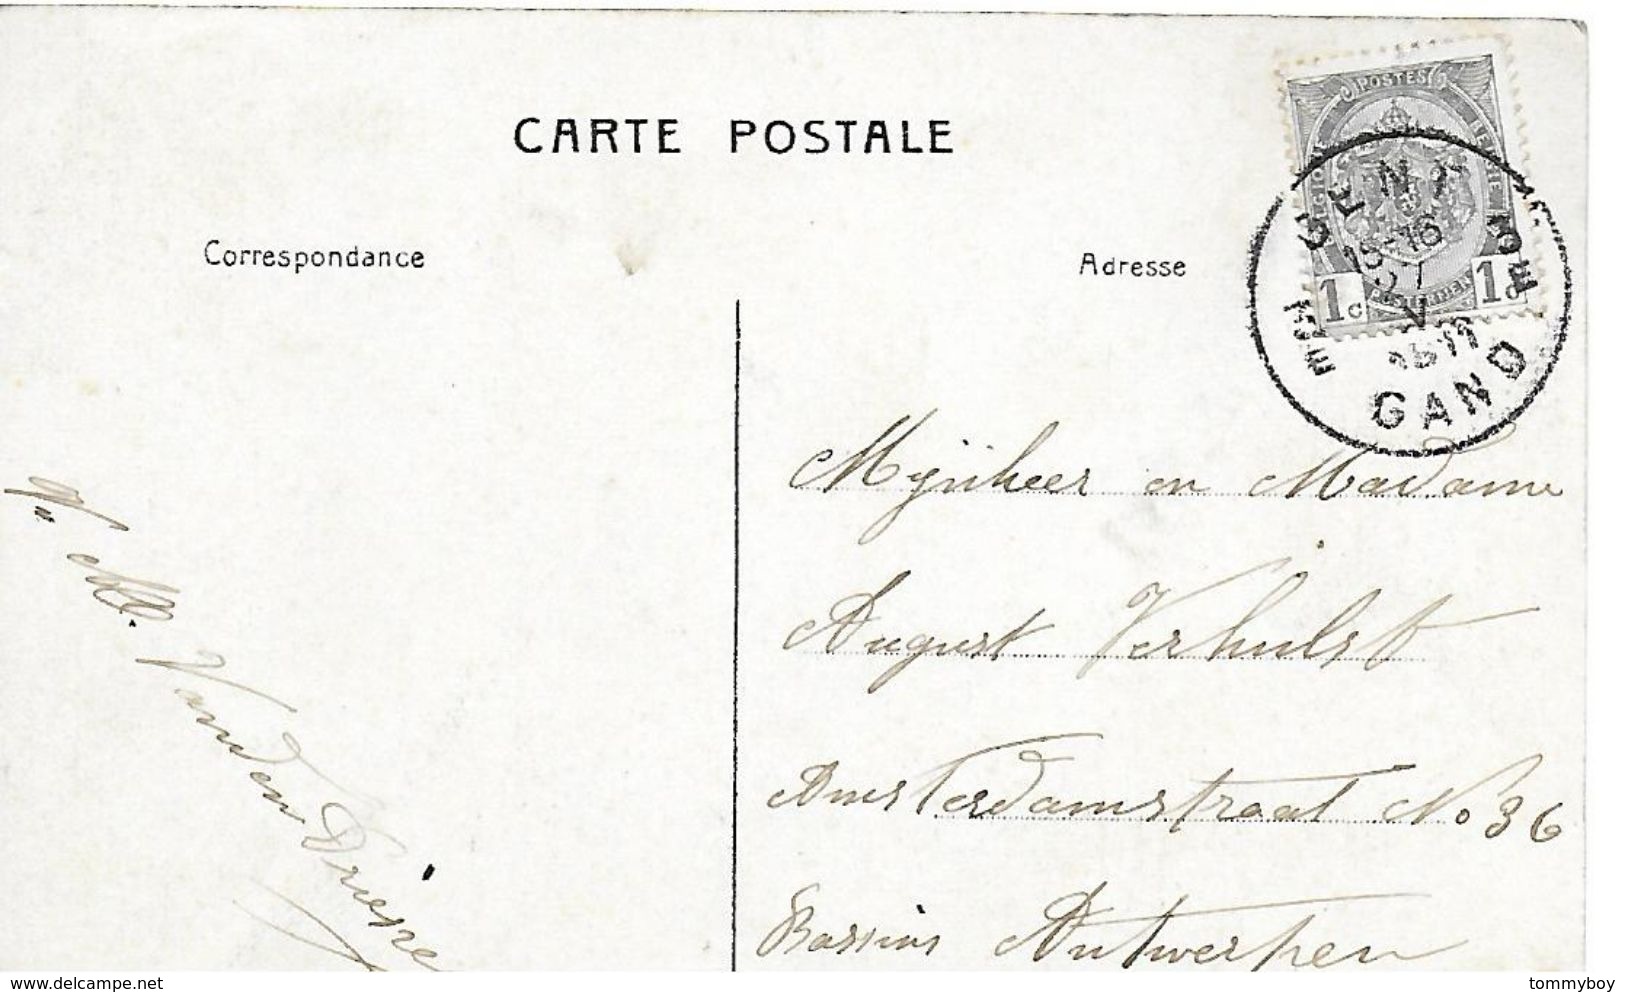 CARTE POSTALE
Correspondance
Adresse
POSTES
1c
1c
GENT
15-16
GAND
Mynheer en Madame
August Verhulst
Amsterdamstraat No 36
Bassins Antwerpen
Van den Driessche
delcampe.net
tommyboy